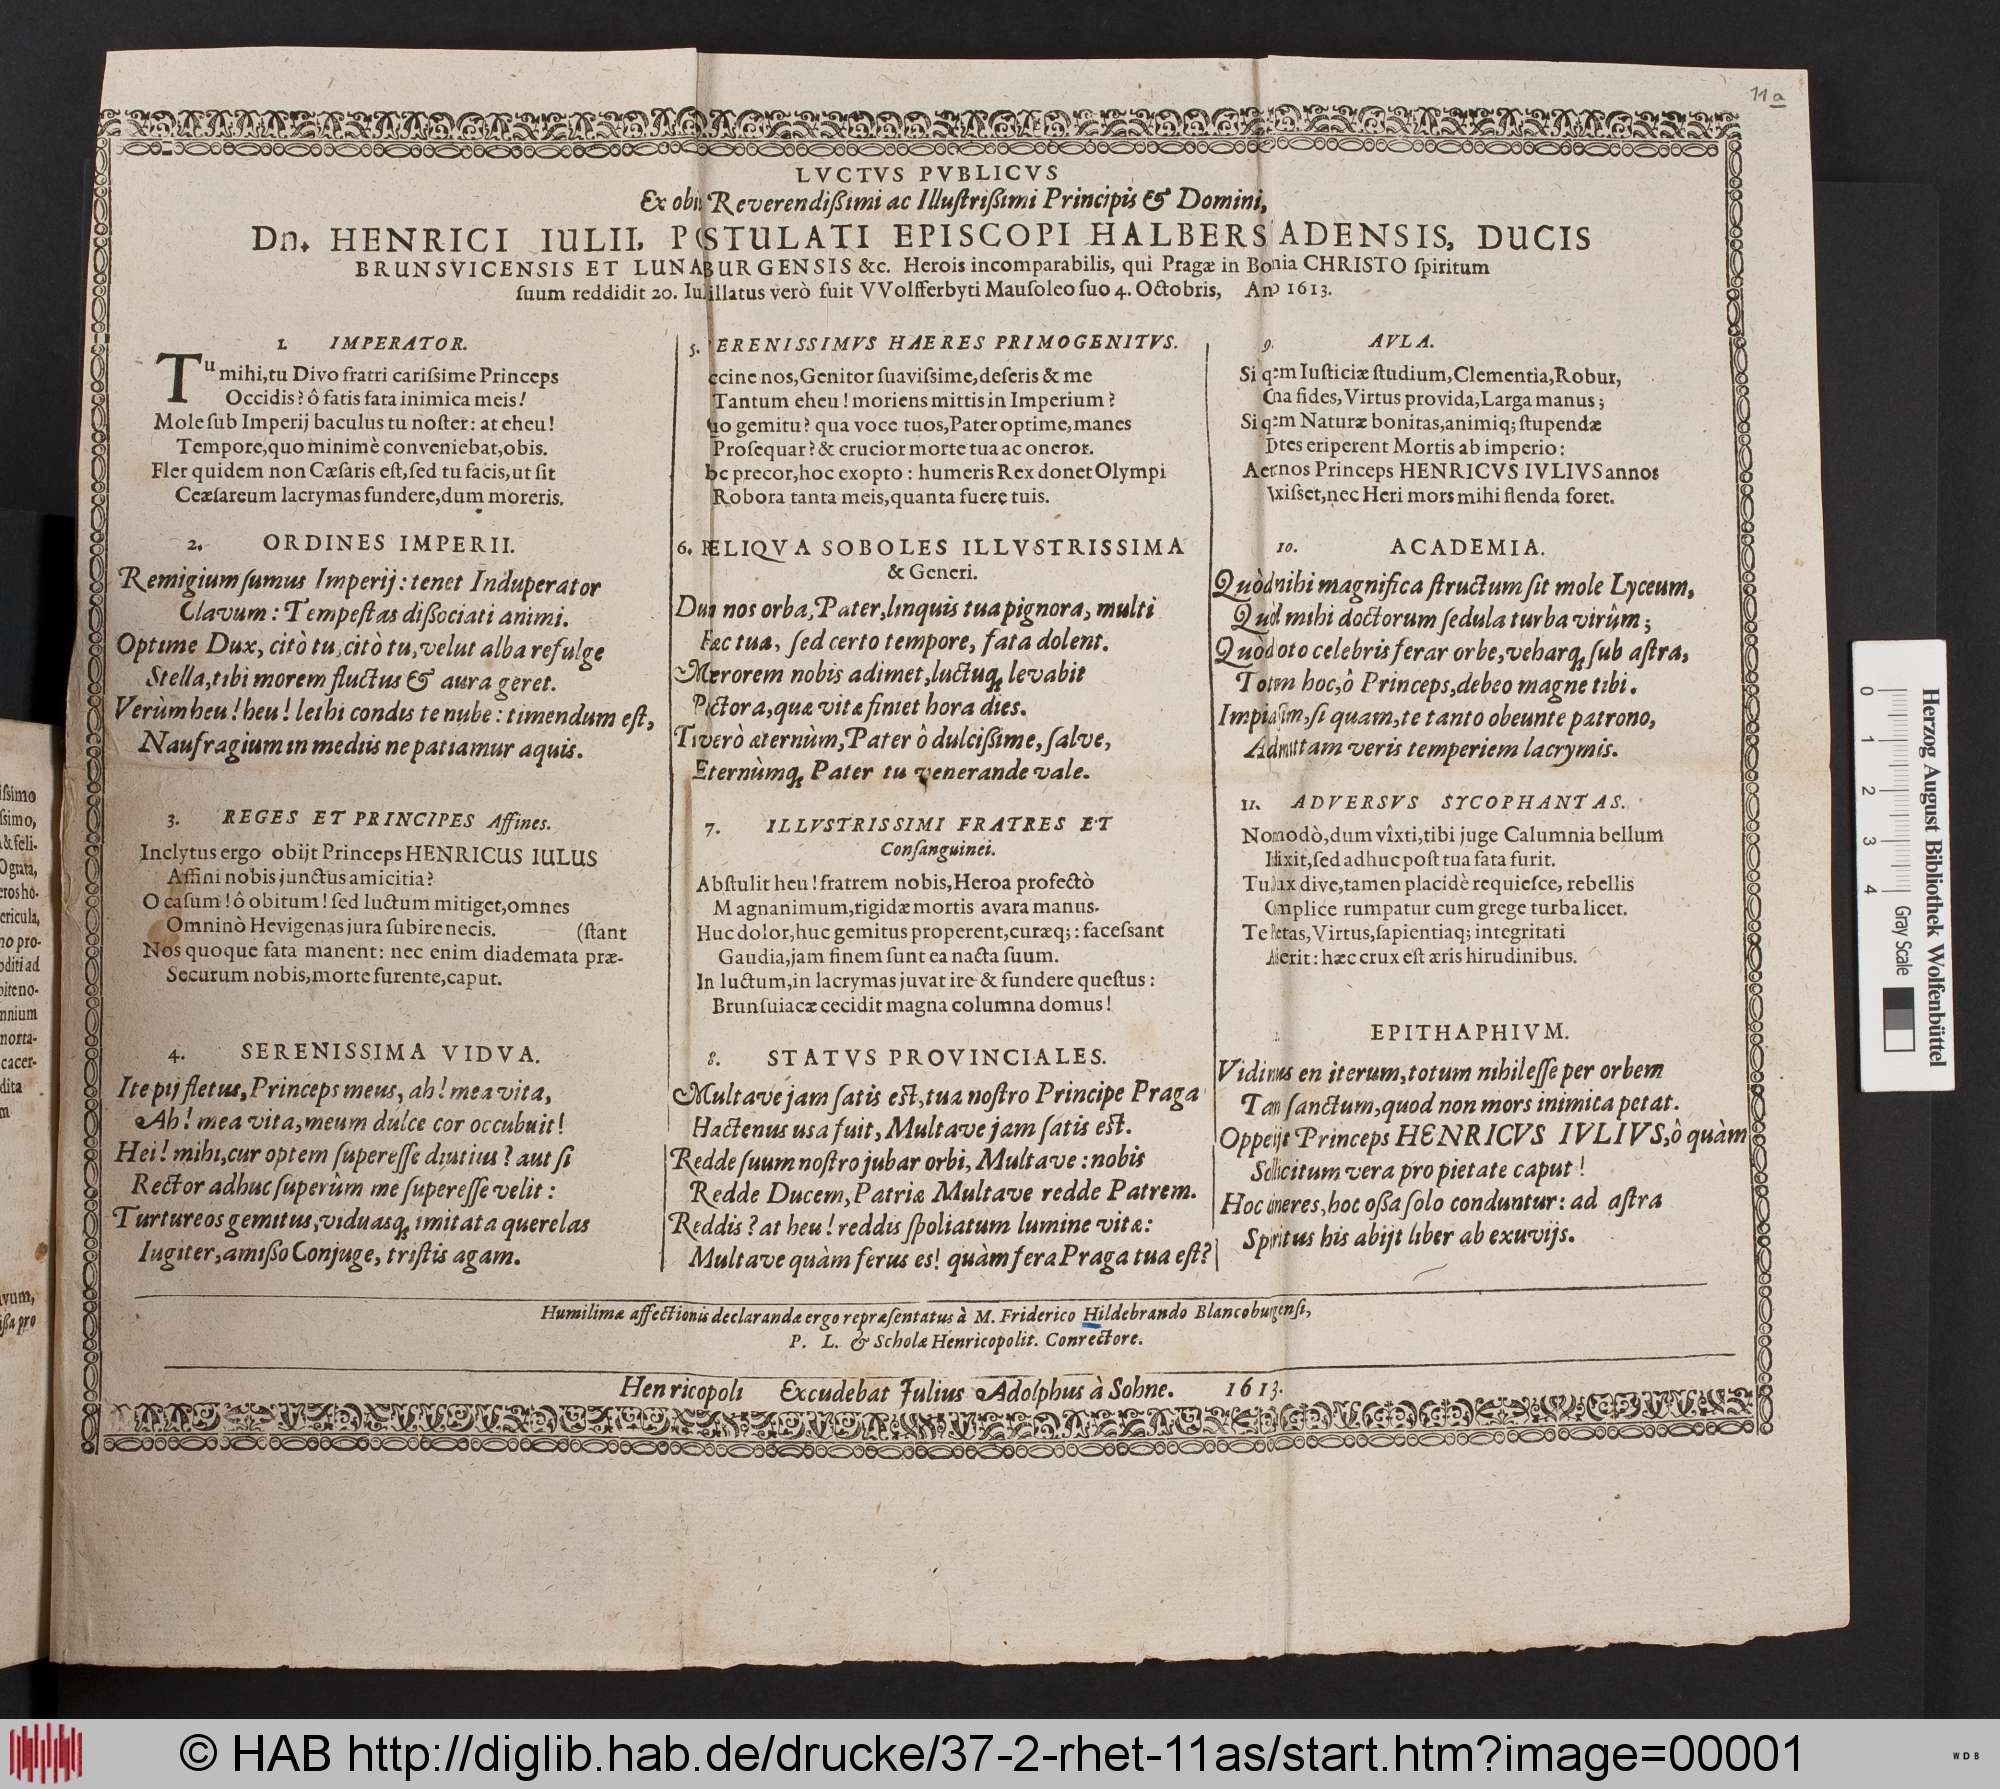 11a
LVCTVS PVBLICVS
Ex obi Reverendißimi ac Illustrißimi Principis & Domini,
Dn. HENRICI IULII, PSTULATI EPISCOPI HALBERSADENSIS, DUCIS
BRUNSVICENSIS ET LUNABURGENSIS &c. Herois incomparabilis, qui Pragæ in Bonia CHRISTO ſpiritum
ſuum reddidit 20. Iul illatus verò fuit VVolfferbyti Mauſoleo ſuo 4. Octobris, Ano 1613.
1. IMPERATOR.
Tu mihi, tu Divo fratri cariſsime Princeps
Occidis? ô fatis fata inimica meis!
Mole ſub Imperij baculus tu noſter: at eheu!
Tempore, quo minimè conveniebat, obis.
Fler quidem non Cæſaris eſt, ſed tu facis, ut ſit
Ceæſareum lacrymas fundere, dum moreris.
2. ORDINES IMPERII.
Remigium ſumus Imperij: tenet Induperator
Clavum: Tempeſtas dißociati animi.
Optime Dux, citò tu, citò tu, velut alba refulge
Stella, tibi morem fluctus & aura geret.
Verùm heu! heu! lethi condis te nube: timendum eſt,
Naufragium in mediis ne patiamur aquis.
3. REGES ET PRINCIPES Affines.
Inclytus ergo obijt Princeps HENRICUS IULUS
Affini nobis junctus amicitia?
O caſum! ô obitum! ſed luctum mitiget, omnes
Omninò Hevigenas jura ſubire necis. (ſtant
Nos quoque fata manent: nec enim diademata præ-
Securum nobis, morte furente, caput.
4. SERENISSIMA VIDVA.
Ite pij fletus, Princeps meus, ah! mea vita,
Ah! mea vita, meum dulce cor occubuit!
Hei! mihi, cur optem ſupereſſe diutius? aut ſi
Rector adhuc ſuperûm me ſupereſſe velit:
Turtureos gemitus, viduasq; imitata querelas
Iugiter, amißo Conjuge, triſtis agam.
5. ERENISSIMVS HAERES PRIMOGENITVS.
ccine nos, Genitor ſuaviſsime, deſeris & me
Tantum eheu! moriens mittis in Imperium?
uo gemitu? qua voce tuos, Pater optime, manes
Proſequar? & crucior morte tua ac oneror.
oc precor, hoc exopto: humeris Rex donet Olympi
Robora tanta meis, quanta fuere tuis.
6. RELIQVA SOBOLES ILLVSTRISSIMA
& Generi.
Dum nos orba, Pater, linquis tua pignora, multi
Hæc tua, ſed certo tempore, fata dolent.
Mærorem nobis adimet, luctuq; levabit
Pectora, quæ vitæ finiet hora dies.
Tu verò æternùm, Pater ô dulciſſime, ſalve,
Eternùmq; Pater tu venerande vale.
7. ILLVSTRISSIMI FRATRES ET
Conſanguinei.
Abſtulit heu! fratrem nobis, Heroa profectò
Magnanimum, rigidæ mortis avara manus.
Huc dolor, huc gemitus properent, curæq;: faceſsant
Gaudia, jam finem ſunt ea nacta ſuum.
In luctum, in lacrymas juvat ire & fundere queſtus:
Brunſuiacæ cecidit magna columna domus!
8. STATVS PROVINCIALES.
Multave jam ſatis eſt, tua noſtro Principe Praga
Hactenus usa fuit, Multave jam ſatis eſt.
Redde ſuum noſtro jubar orbi, Multave: nobis
Redde Ducem, Patriæ Multave redde Patrem.
Reddis? at heu! reddis ſpoliatum lumine vitæ:
Multave quàm ferus es! quàm fera Praga tua eſt?
9. AVLA.
Si qem Iuſticiæ ſtudium, Clementia, Robur,
Cna fides, Virtus provida, Larga manus;
Si qem Naturæ bonitas, animiq; ſtupendæ
Dtes eriperent Mortis ab imperio:
Aernos Princeps HENRICVS IVLIVS annos
Vixiſset, nec Heri mors mihi flenda foret.
10. ACADEMIA.
Quòd mihi magnifica ſtructum ſit mole Lyceum,
Quòd mihi doctorum ſedula turba virûm;
Quòd toto celebris ferar orbe, veharq; ſub aſtra,
Totum hoc, ô Princeps, debeo magne tibi.
Impia ſim, ſi quam, te tanto obeunte patrono,
Admittam veris temperiem lacrymis.
11. ADVERSVS SYCOPHANTAS.
Nomodò, dum vîxti, tibi juge Calumnia bellum
Idixit, ſed adhuc poſt tua fata furit.
Tu Dux dive, tamen placidè requieſce, rebellis
Complice rumpatur cum grege turba licet.
Te Pietas, Virtus, ſapientiaq; integritati
Aſserit: hæc crux eſt æris hirudinibus.
EPITHAPHIVM.
Vidimus en iterum, totum nihil eſſe per orbem
Tam ſanctum, quod non mors inimica petat.
Oppetijt Princeps HENRICVS IVLIVS, ô quàm
Sollicitum vera pro pietate caput!
Hoc cineres, hoc oßa ſolo conduntur: ad aſtra
Spiritus his abijt liber ab exuvijs.
Humilimæ affectionis declarandæ ergo repræſentatus à M. Friderico Hildebrando Blancoburgenſi,
P. L. & Scholæ Henricopolit. Conrectore.
Henricopoli Excudebat Julius Adolphus à Sohne. 1613.
iſsimo
ſsimo,
& feli-
O grata,
eros ho-
ericula,
no pro-
oditi ad
bite no-
mnium
morta-
cacer-
dita
m
vum,
iſſa pro
0 1 2 3 4
Herzog August Bibliothek Wolfenbüttel
Gray Scale
© HAB http://diglib.hab.de/drucke/37-2-rhet-11as/start.htm?image=00001
WDB